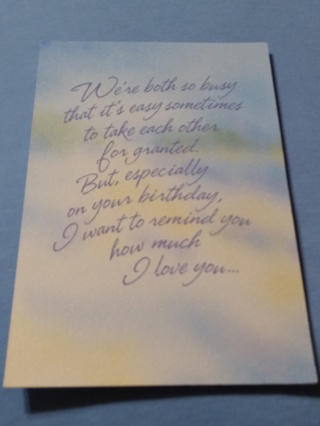 We're both so busy
that it's easy sometimes
to take each other
for granted.
But, especially
on your birthday,
I want to remind you
how much
I love you...